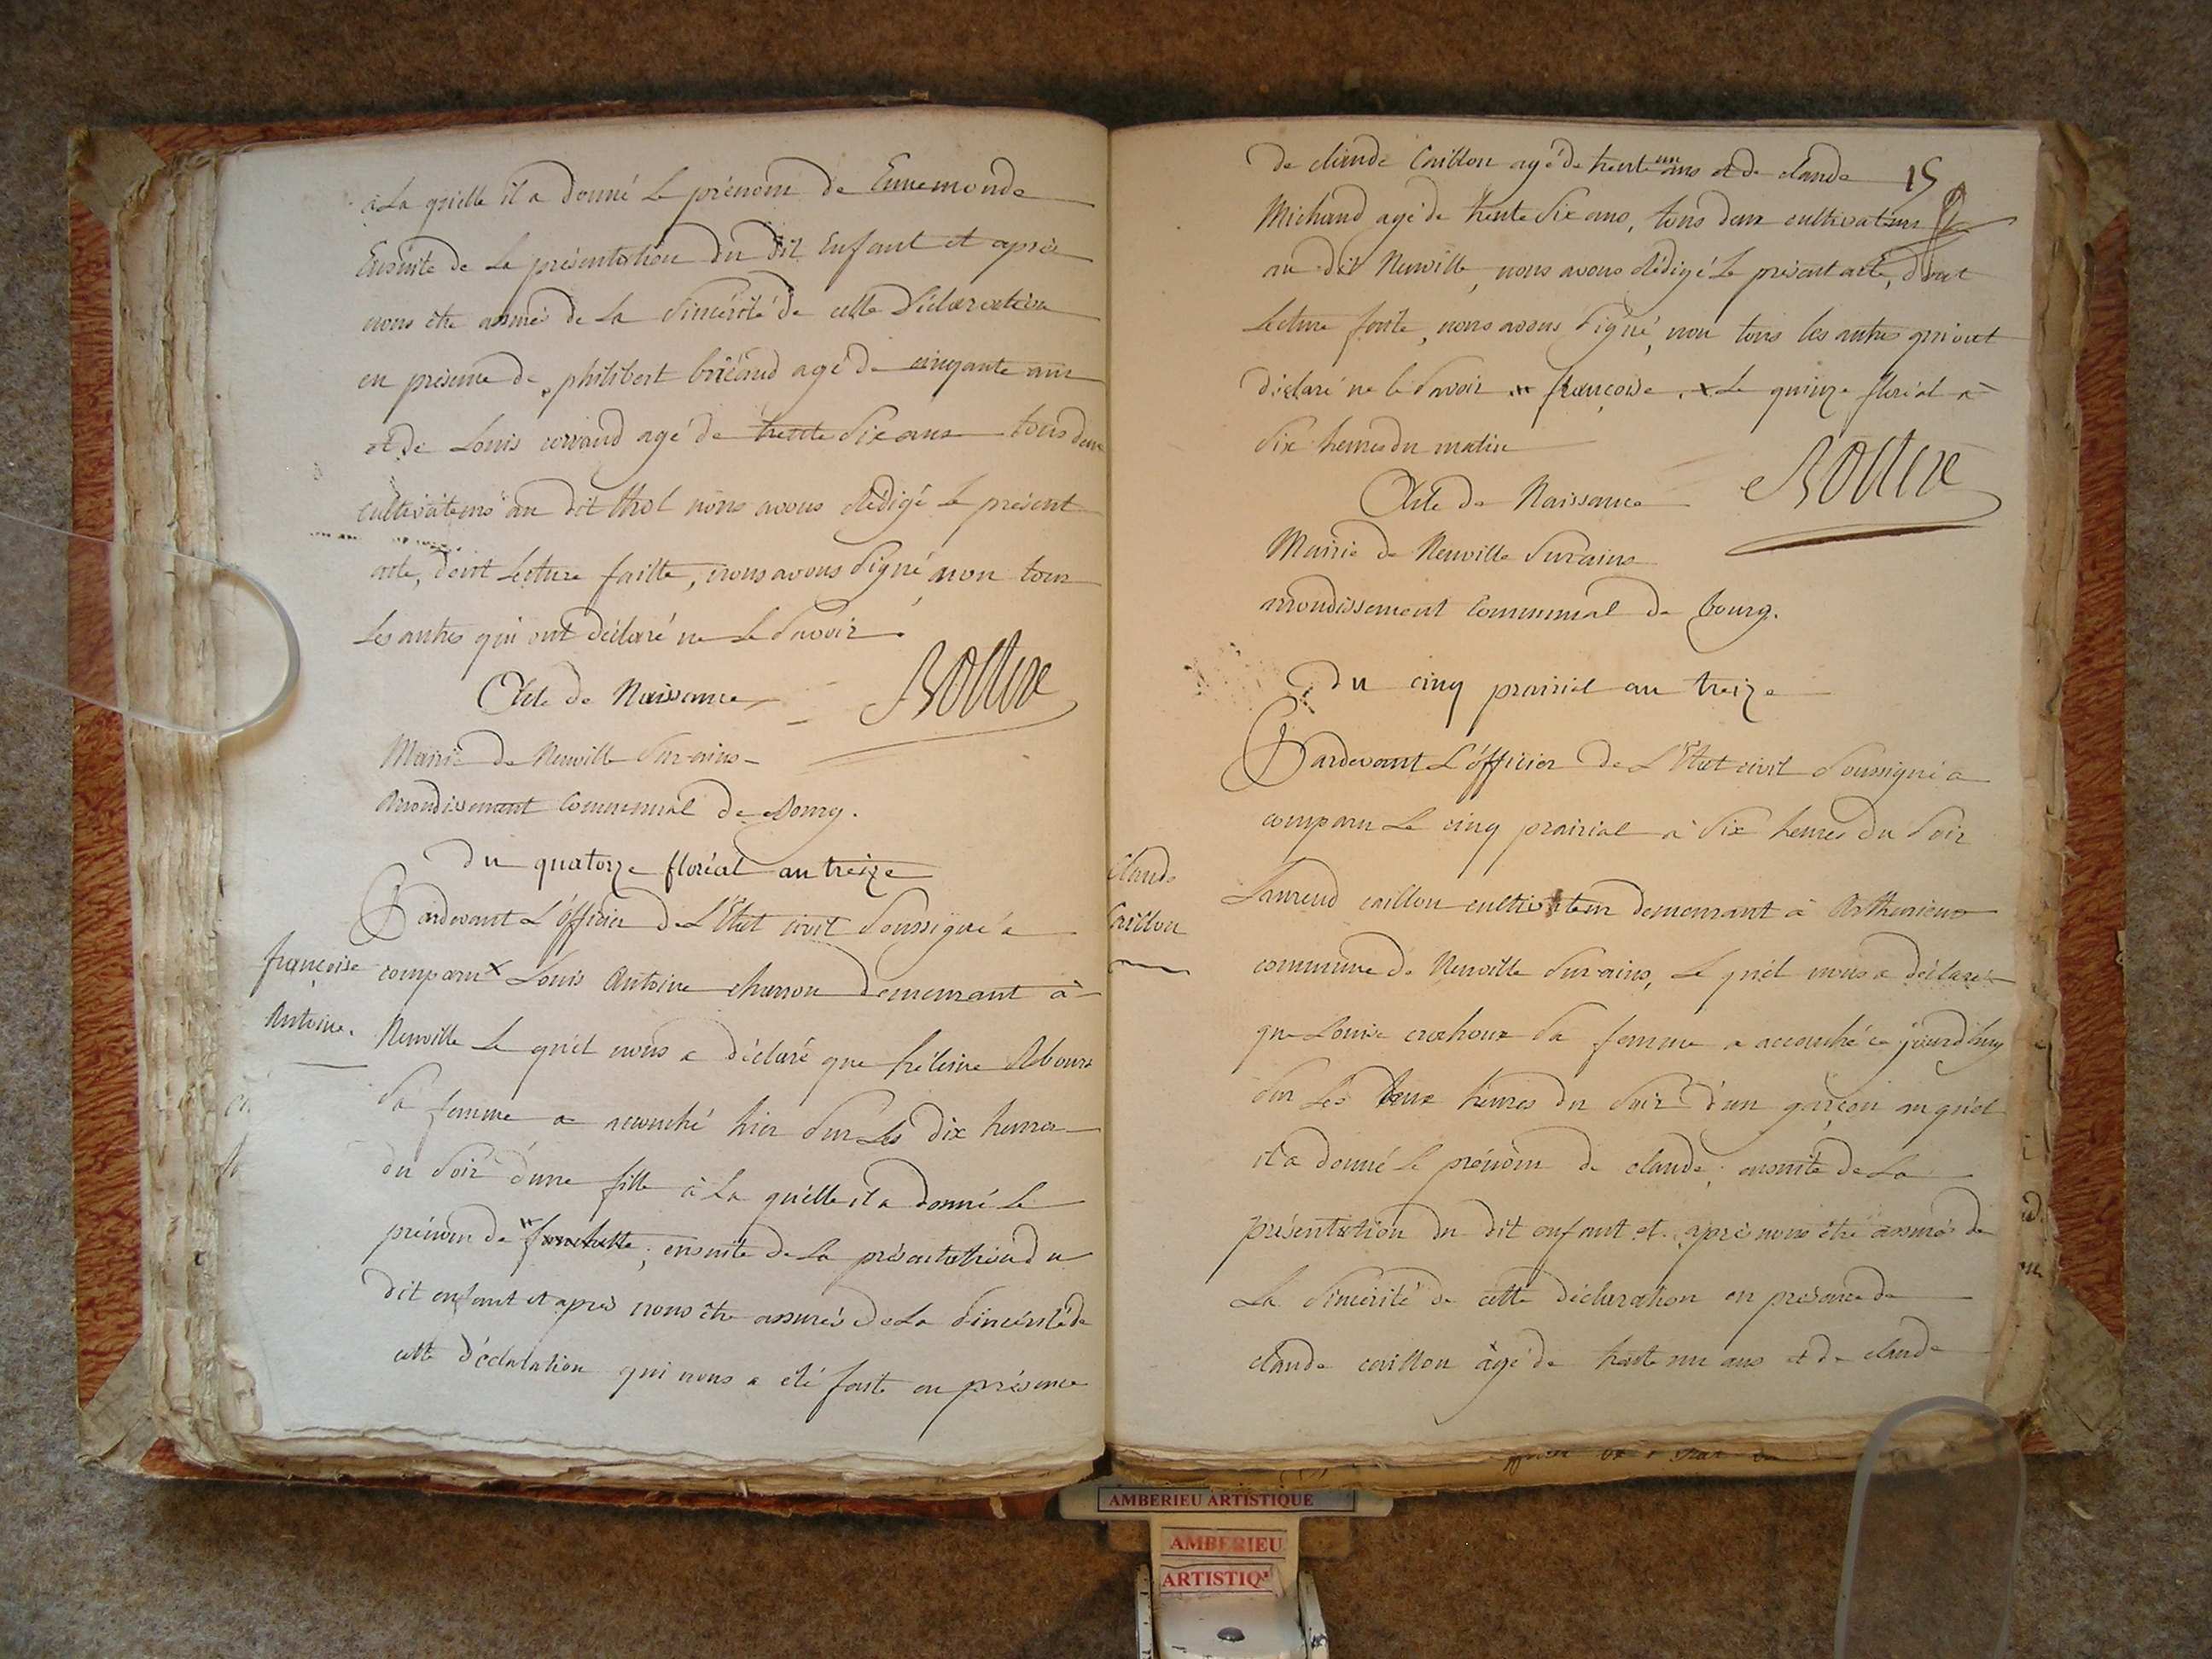 à La quelle il a donné Le prénom de Ennemonde
Ensuite de La présentation du dit Enfant et après
nous être assuré de La Sincérité de cette Déclaration
en présence de philibert agé de cinquante ans
et de Louis agé de trente Six ans tous deux
cultivateurs au dit thol nous avons Rédigé Le présent
acte, dont Lecture faitte, nous avons Signé non tous
Les autres qui ont déclaré ne Le Savoir.
Acte de Naissance
Mairie de Neuville Sur ains
Arrondissement Communal de Bourg.
du quatorze floréal an treize
Pardevant L'officier de L'Etat civil Soussigné a
françoise
Antoine.
comparu x Louis Antoine charron demeurant à
Neuville Le quel nous a déclaré que hélène
Sa femme a accouché hier Sur Les dix heures
du Soir d'une fille à La quelle il a donné Le
prénom de ; ensuite de La présentation du
dit enfant et après nous être assurés de La Sincérité de
cette déclaration qui nous a été faite en présence
15
de claude Caillon agé de trente un ans et de claude
Michaud agé de trente Six ans, tous deux cultivateurs
au dit Neuville, nous avons Rédigé Le présent acte, dont
Lecture faite, nous avons Signé, non tous les autres qui ont
déclaré ne le Savoir. françoise. x Le quinze floréal à
Six heures du matin
Acte de Naissance
Mairie de Neuville Sur ains
arrondissement Communal de bourg.
du cinq prairial an treize
Pardevant L'officier de L'Etat civil Soussigné a
comparu Le cinq prairial à Six heures du Soir
Claude
Caillon
Laurend caillon cultivateur demeurant à
commune de Neuville Sur ains, Le quel nous a déclaré
que Louise Sa femme a accouché ce jourd'huy
Sur Les deux heures du Soir d'un garçon au quel
il a donné Le prénom de claude; ensuite de La
présentation du dit enfant et après nous être assurés de
La Sincérité de cette déclaration en présence de
claude caillon âgé de trente un ans et de claude
AMBERIEU ARTISTIQUE
AMBERIEU
ARTISTIQ